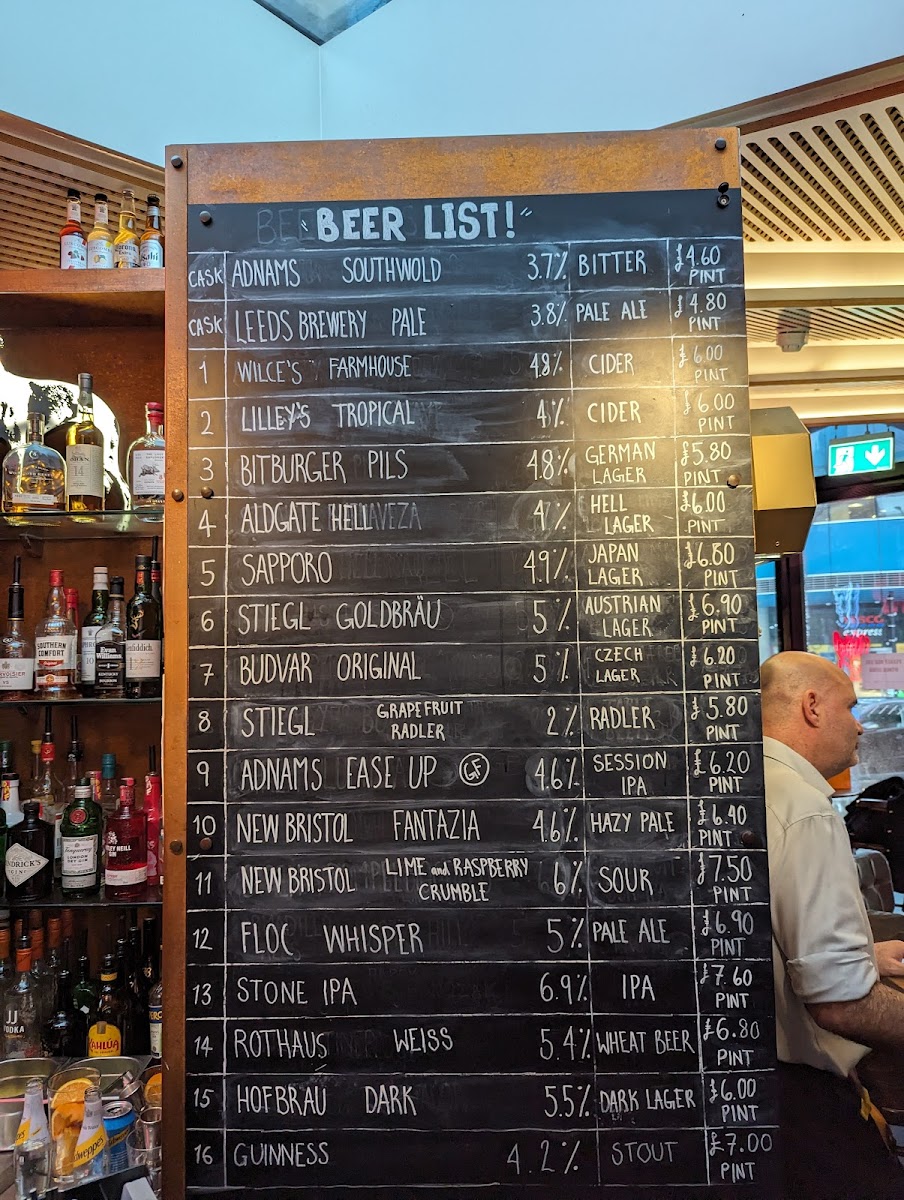 "BEER LIST!"
CASK ADNAMS SOUTHWOLD 3.7% BITTER £4.60 PINT
CASK LEEDS BREWERY PALE 3.8% PALE ALE £4.80 PINT
1 WILCE'S FARMHOUSE 4.8% CIDER £6.00 PINT
2 LILLEY'S TROPICAL 4% CIDER £6.00 PINT
3 BITBURGER PILS 4.8% GERMAN LAGER £5.80 PINT
4 ALDGATE HELL 4% HELL LAGER £6.00 PINT
5 SAPPORO 4.9% JAPAN LAGER £6.80 PINT
6 STIEGL GOLDBRÄU 5% AUSTRIAN LAGER £6.90 PINT
7 BUDVAR ORIGINAL 5% CZECH LAGER £6.20 PINT
8 STIEGL GRAPEFRUIT RADLER 2% RADLER £5.80 PINT
9 ADNAMS EASE UP GF 4.6% SESSION IPA £6.20 PINT
10 NEW BRISTOL FANTAZIA 4.6% HAZY PALE £6.40 PINT
11 NEW BRISTOL LIME and RASPBERRY CRUMBLE 6% SOUR £7.50 PINT
12 FLOC WHISPER 5% PALE ALE £6.90 PINT
13 STONE IPA 6.9% IPA £7.60 PINT
14 ROTHAUS WEISS 5.4% WHEAT BEER £6.80 PINT
15 HOFBRAU DARK 5.5% DARK LAGER £6.00 PINT
16 GUINNESS 4.2% STOUT £7.00 PINT
14
SOUTHERN
COMFORT
Evan
Williams
LONDON
DRY GIN
GIN
JJ
VODKA
KAHLÚA
express